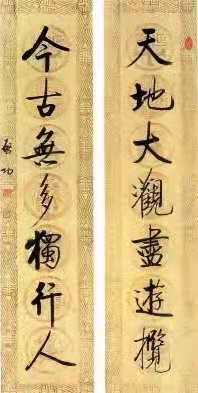 天地大觀盡遊覽
今古無多獨行人
启功